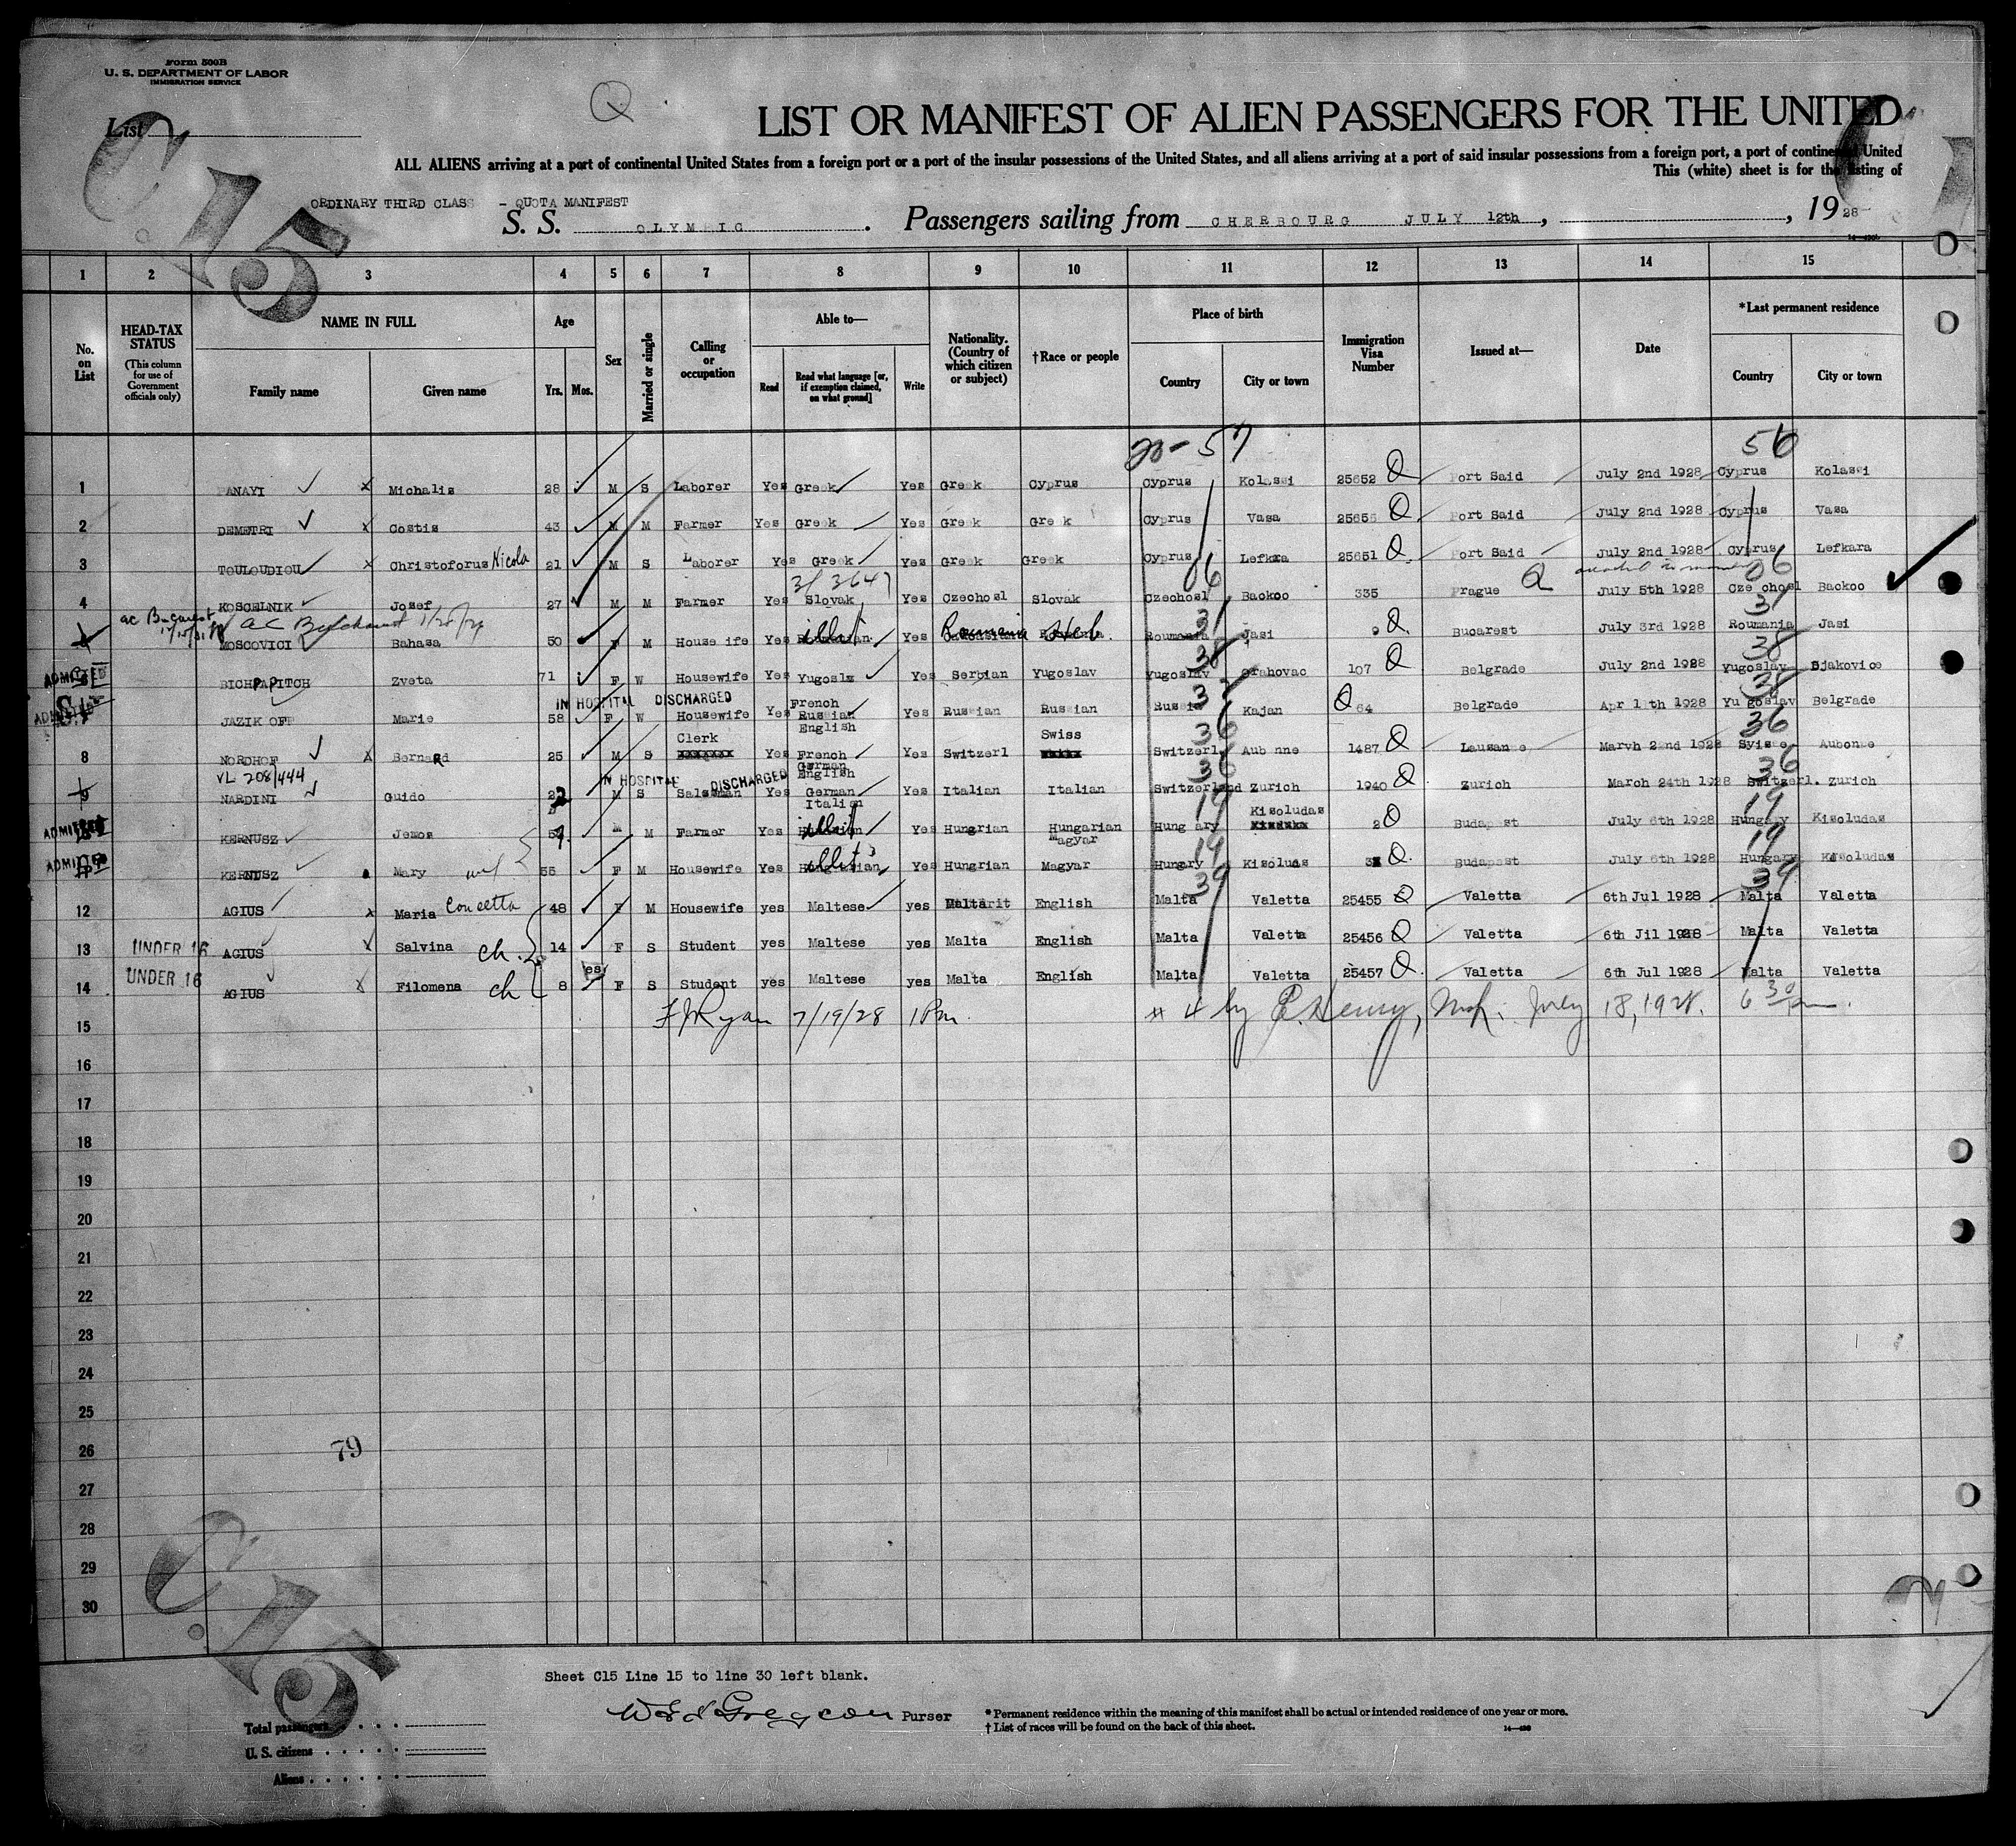 Form 500B
U. S. DEPARTMENT OF LABOR
IMMIGRATION SERVICE
Q
List
C 15
LIST OR MANIFEST OF ALIEN PASSENGERS FOR THE UNITED
ALL ALIENS arriving at a port of continental United States from a foreign port or a port of the insular possessions of the United States, and all aliens arriving at a port of said insular possessions from a foreign port, a port of continental United
This (white) sheet is for the listing of
ORDINARY THIRD CLASS - QUOTA MANIFEST
S. S. OLYMPIC . Passengers sailing from CHERBOURG JULY 12th, , 19 28
1 2 3 4 5 6 7 8 9 10 11 12 13 14 15
No. on List
HEAD-TAX STATUS (This column for use of Government officials only)
NAME IN FULL Family name Given name
Age Yrs. Mos.
Sex
Married or single
Calling or occupation
Able to— Read Read what language [or, if exemption claimed, on what ground] Write
Nationality. (Country of which citizen or subject)
†Race or people
Place of birth Country City or town
Immigration Visa Number
Issued at—
Date
*Last permanent residence Country City or town
20-57 56
1 PANAYI Michalis 28 M S Laborer Yes Greek Yes Greek Cyprus Cyprus Kolassi 25652 Q Port Said July 2nd 1928 Cyprus Kolassi
2 DEMETRI Costis 43 M M Farmer Yes Greek Yes Greek Greek Cyprus Vasa 25655 Q Port Said July 2nd 1928 Cyprus Vasa
3 TOULOUDIOU Christoforus Nicola 21 M S Laborer Yes Greek Yes Greek Greek Cyprus Lefkra 25651 Q Port Said July 2nd 1928 Cyprus Lefkara
3/3647 06 Q 06
4 KOSCELNIK Josef 27 M M Farmer Yes Slovak Yes Czechosl Slovak Czechosl Backoo 335 Prague July 5th 1928 Czechosl Backoo
ac Bucarest 31 31
MOSCOVICI Bahasa 50 F M Housewife Yes illit Yes Roumania Heb Roumania Jasi 9 Q Bucarest July 3rd 1928 Roumania Jasi
ADMITTED 38 38
BICHPAPITCH Zveta 71 F W Housewife Yes Yugoslv Yes Serbian Yugoslav Yugoslav Orahovac 107 Q Belgrade July 2nd 1928 Yugoslav Djakovice
IN HOSPITAL DISCHARGED 38
ADMITTED JAZIK OFF Marie 58 F W Housewife Yes French Russian English Yes Russian Russian Russia Kajan Q 64 Belgrade Apr 11th 1928 Yugoslav Belgrade
36 36
8 NORDHOF Bernard 25 M S Clerk Yes French German English Yes Switzerl Swiss Switzerl Aubonne 1487 Q Lausanne Marvh 22nd 1928 Syisse Aubonne
VL 208/444 IN HOSPITAL DISCHARGED 36 36
9 NARDINI Guido 22 M S Salesman Yes German Italian Yes Italian Italian Switzerland Zurich 1940 Q Zurich March 24th 1928 Switzerl. Zurich
19 19
ADMITTED KERNUSZ Jemos M M Farmer Yes illit Yes Hungrian Hungarian Magyar Hungary Kisoludas 2 Q Budapest July 6th 1928 Hungary Kisoludas
19 19
ADMITTED KERNUSZ Mary wf 55 F M Housewife Yes illit Yes Hungrian Magyar Hungry Kisoluds 3 Q Budapest July 6th 1928 Hungary Kisoludas
39 39
12 AGIUS Maria Concetta 48 F M Housewife yes Maltese yes Malta English Malta Valetta 25455 Q Valetta 6th Jul 1928 Malta Valetta
13 UNDER 16 AGIUS Salvina ch. 14 F S Student yes Maltese yes Malta English Malta Valetta 25456 Q Valetta 6th Jil 1928 Malta Valetta
14 UNDER 16 AGIUS Filomena ch 8 yes F S Student yes Maltese yes Malta English Malta Valetta 25457 Q Valetta 6th Jul 1928 Malta Valetta
F J Ryan 7/19/28 1 Pm. # 4 by P. Henry, Insp. July 18, 1928. 6 30 pm.
15
16
17
18
19
20
21
22
23
24
25
26
79
27
28
29
30
C 15
Sheet C15 Line 15 to line 30 left blank.
Purser
* Permanent residence within the meaning of this manifest shall be actual or intended residence of one year or more.
† List of races will be found on the back of this sheet.
Total passengers
U. S. citizens
Aliens